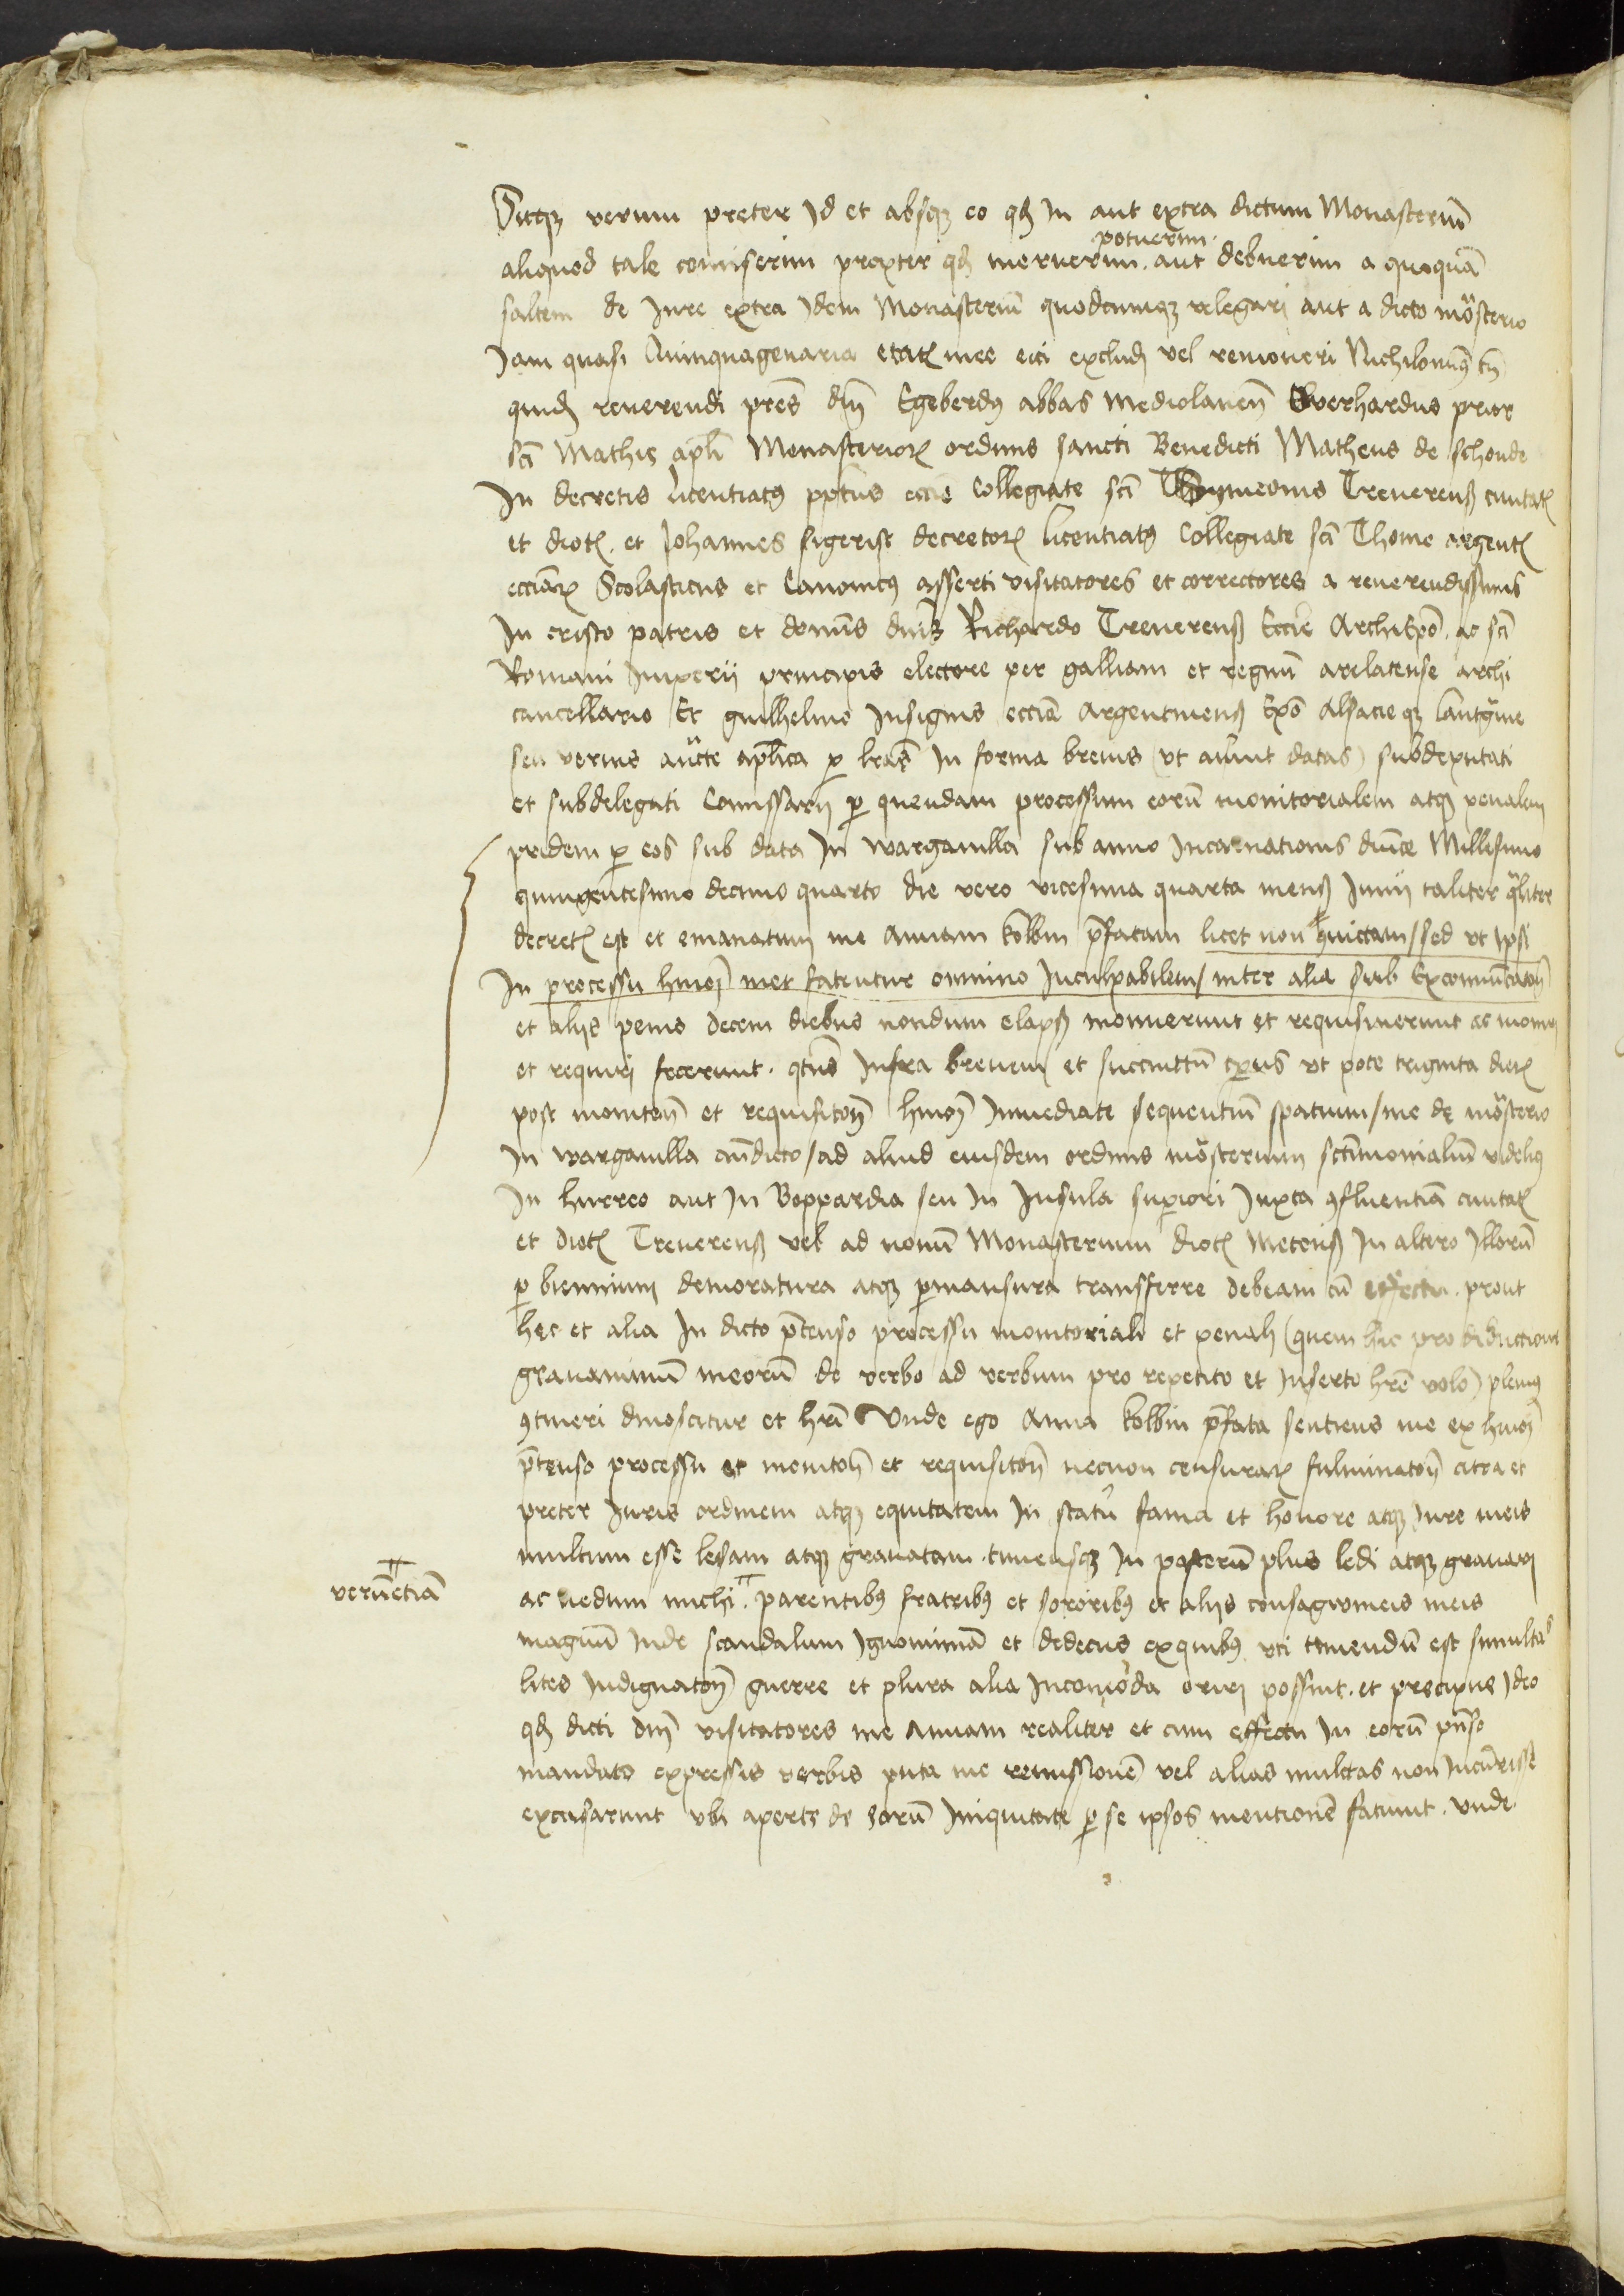 Sitqz verum preter Id et absqz eo qd In aut extra dictum Monasteriū
potuerim
aliquod tale comiserim propter qd meruerim. aut debuerim a quoquā
saltem de Jure extra Idem Monasteriū quodcumqz relegari aut a dicto mōsterio
Jam quasi Quinquagenaria etatꝭ mee eici excludi vel remoueri Nichilominꝰ tn̄
quidē reuerendi pr̄es dn̄i Egeberdꝰ abbas Mediolanen̄ Euerhardus prior
sc̄i Mathie apl̄i Monasterioꝝ ordinis sancti Benedicti Matheus de schonde
In decretis licentiatꝰ ppt̄us eccīe Collegiate sc̄i Symeonis Treuerenß ciuitatꝭ
et diocꝭ. et Johannes sigerist decretoꝝ licentiatꝰ Collegiate sc̄i Thome argentꝭ
eccīaꝝ Scolasticus et Canonicꝰ asserti visitatores et correctores a reuerendissimis
In cristo patris et domīs dn̄is Richardo Treuerenß Eccīe Archiep̄o. ac sc̄i
Romani Imperij principis electore per galliam et regnū arelatense archi
cancellario Et guilhelmo Insignis eccīa Argentinenß Ep̄o Alsacieqz lantgrauie
seu verius auc̄te apl̄ica ꝑ l̄ras In forma breuis (vt aiunt datas) subdeputati
et subdelegati Comissarij ꝑ quendam processum eorū monitorialem atqz penalem
pridem ꝑ eos sub data In wargauilla sub anno Incarnationis dn̄ice Millesimo
quingentesimo decimo quarto die vero vicesima quarta menß Junij taliter qͣliter
decretꝭ est et emanatum me Annam kolbin p̄fatam licet non ꝯuictam / sed vt Ipsi
In processu hmōi met fatentur omnino Inculpabilem / inter alia sub Excomunicatōn
et alijs penis decem diebus nondum elapß monuerunt et requisiuerunt ac moneri
et requiri fecerunt. qtn̄s Infra breuem et succinttū tp̄us vt pote triginta dieꝝ
post monitōn̄ et requisitōn̄ hmōi Immediate sequentiū spatium / me de mōsterio
In wargauilla an̄dicto / ad aliud eiusdem ordinis mōsterium sctīmonialiū videlicꝫ
In hurreo aut In Boppardia seu In Insula superiori Juxta ꝯfluentiā ciuitatꝭ
et diocꝭ Treuerenß vel ad nouū Monasterium diocꝭ Metenß In altero Illorū
ꝑ biennium demoratura atqz ꝑmansura transferre debeam cū effectu. prout
hec et alia In dicto p̄tenso processu monitoriali et penali (quem hic pro deductione
grauaminū meorū de verbo ad verbum pro repetito et Inserto hr̄e volo) plenius
ꝯtineri dinoscitur et hr̄i Vnde ego Anna kolbin p̄fata sentiens me ex hmōi
p̄tenso processu et monitōn̄ et requisitōn̄ necnon censuraꝝ fulminatōn̄ citra et
preter Juris ordinem atqz equitatem In statū fama et honore atqz Jure meis
multum esse lesam atqz grauatam. timensqz In posterū plus ledi atqz grauari
verūetiā
ac nedum michi. parentibꝰ fratribꝰ et sororibꝰ et alijs consagwineis meis
magnū Inde scandalum Ignominiā et dedecus exquibꝰ vti timendū est simultas
lites Indignatōn̄ guerre et plura alia Incomoda oriri possint. et precipue Ideo
qd dicti dn̄i visitatores me Annam realiter et cum effectu In eorū p̄n̄so
mandato expressis verbis puta me remissionē vel alias multas non Incurrisse
excusarunt vbi aperte de eorū Iniquitate ꝑ se ipsos mentionē faciunt. vnde